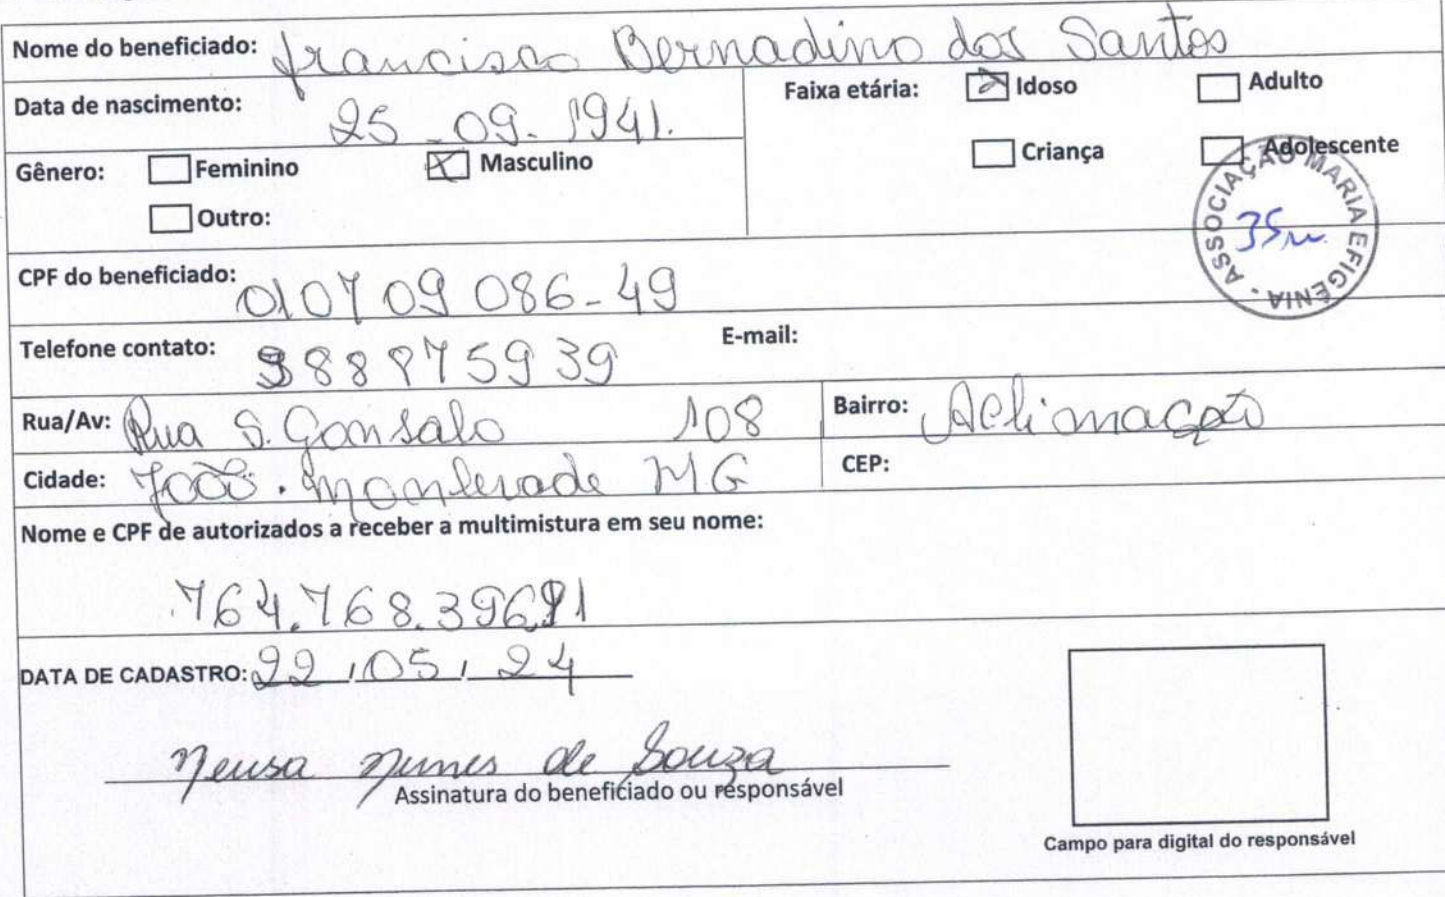 Nome do beneficiado: Francisco Bernadino dos Santos
Data de nascimento: 25-09-1941.
Faixa etária: Idoso Adulto
Criança Adolescente
Gênero: Feminino X Masculino
Outro:
ASSOCIAÇÃO MARIA EFIGÊNIA -
CPF do beneficiado: 010709086-49
Telefone contato: 988875939 E-mail:
Rua/Av: Rua S. Gonsalo 108 Bairro: Aclimação
Cidade: João. Monlevade MG CEP:
Nome e CPF de autorizados a receber a multimistura em seu nome:
764.768.39691
DATA DE CADASTRO: 22/05/24
Neusa Nunes de Souza
Assinatura do beneficiado ou responsável
Campo para digital do responsável